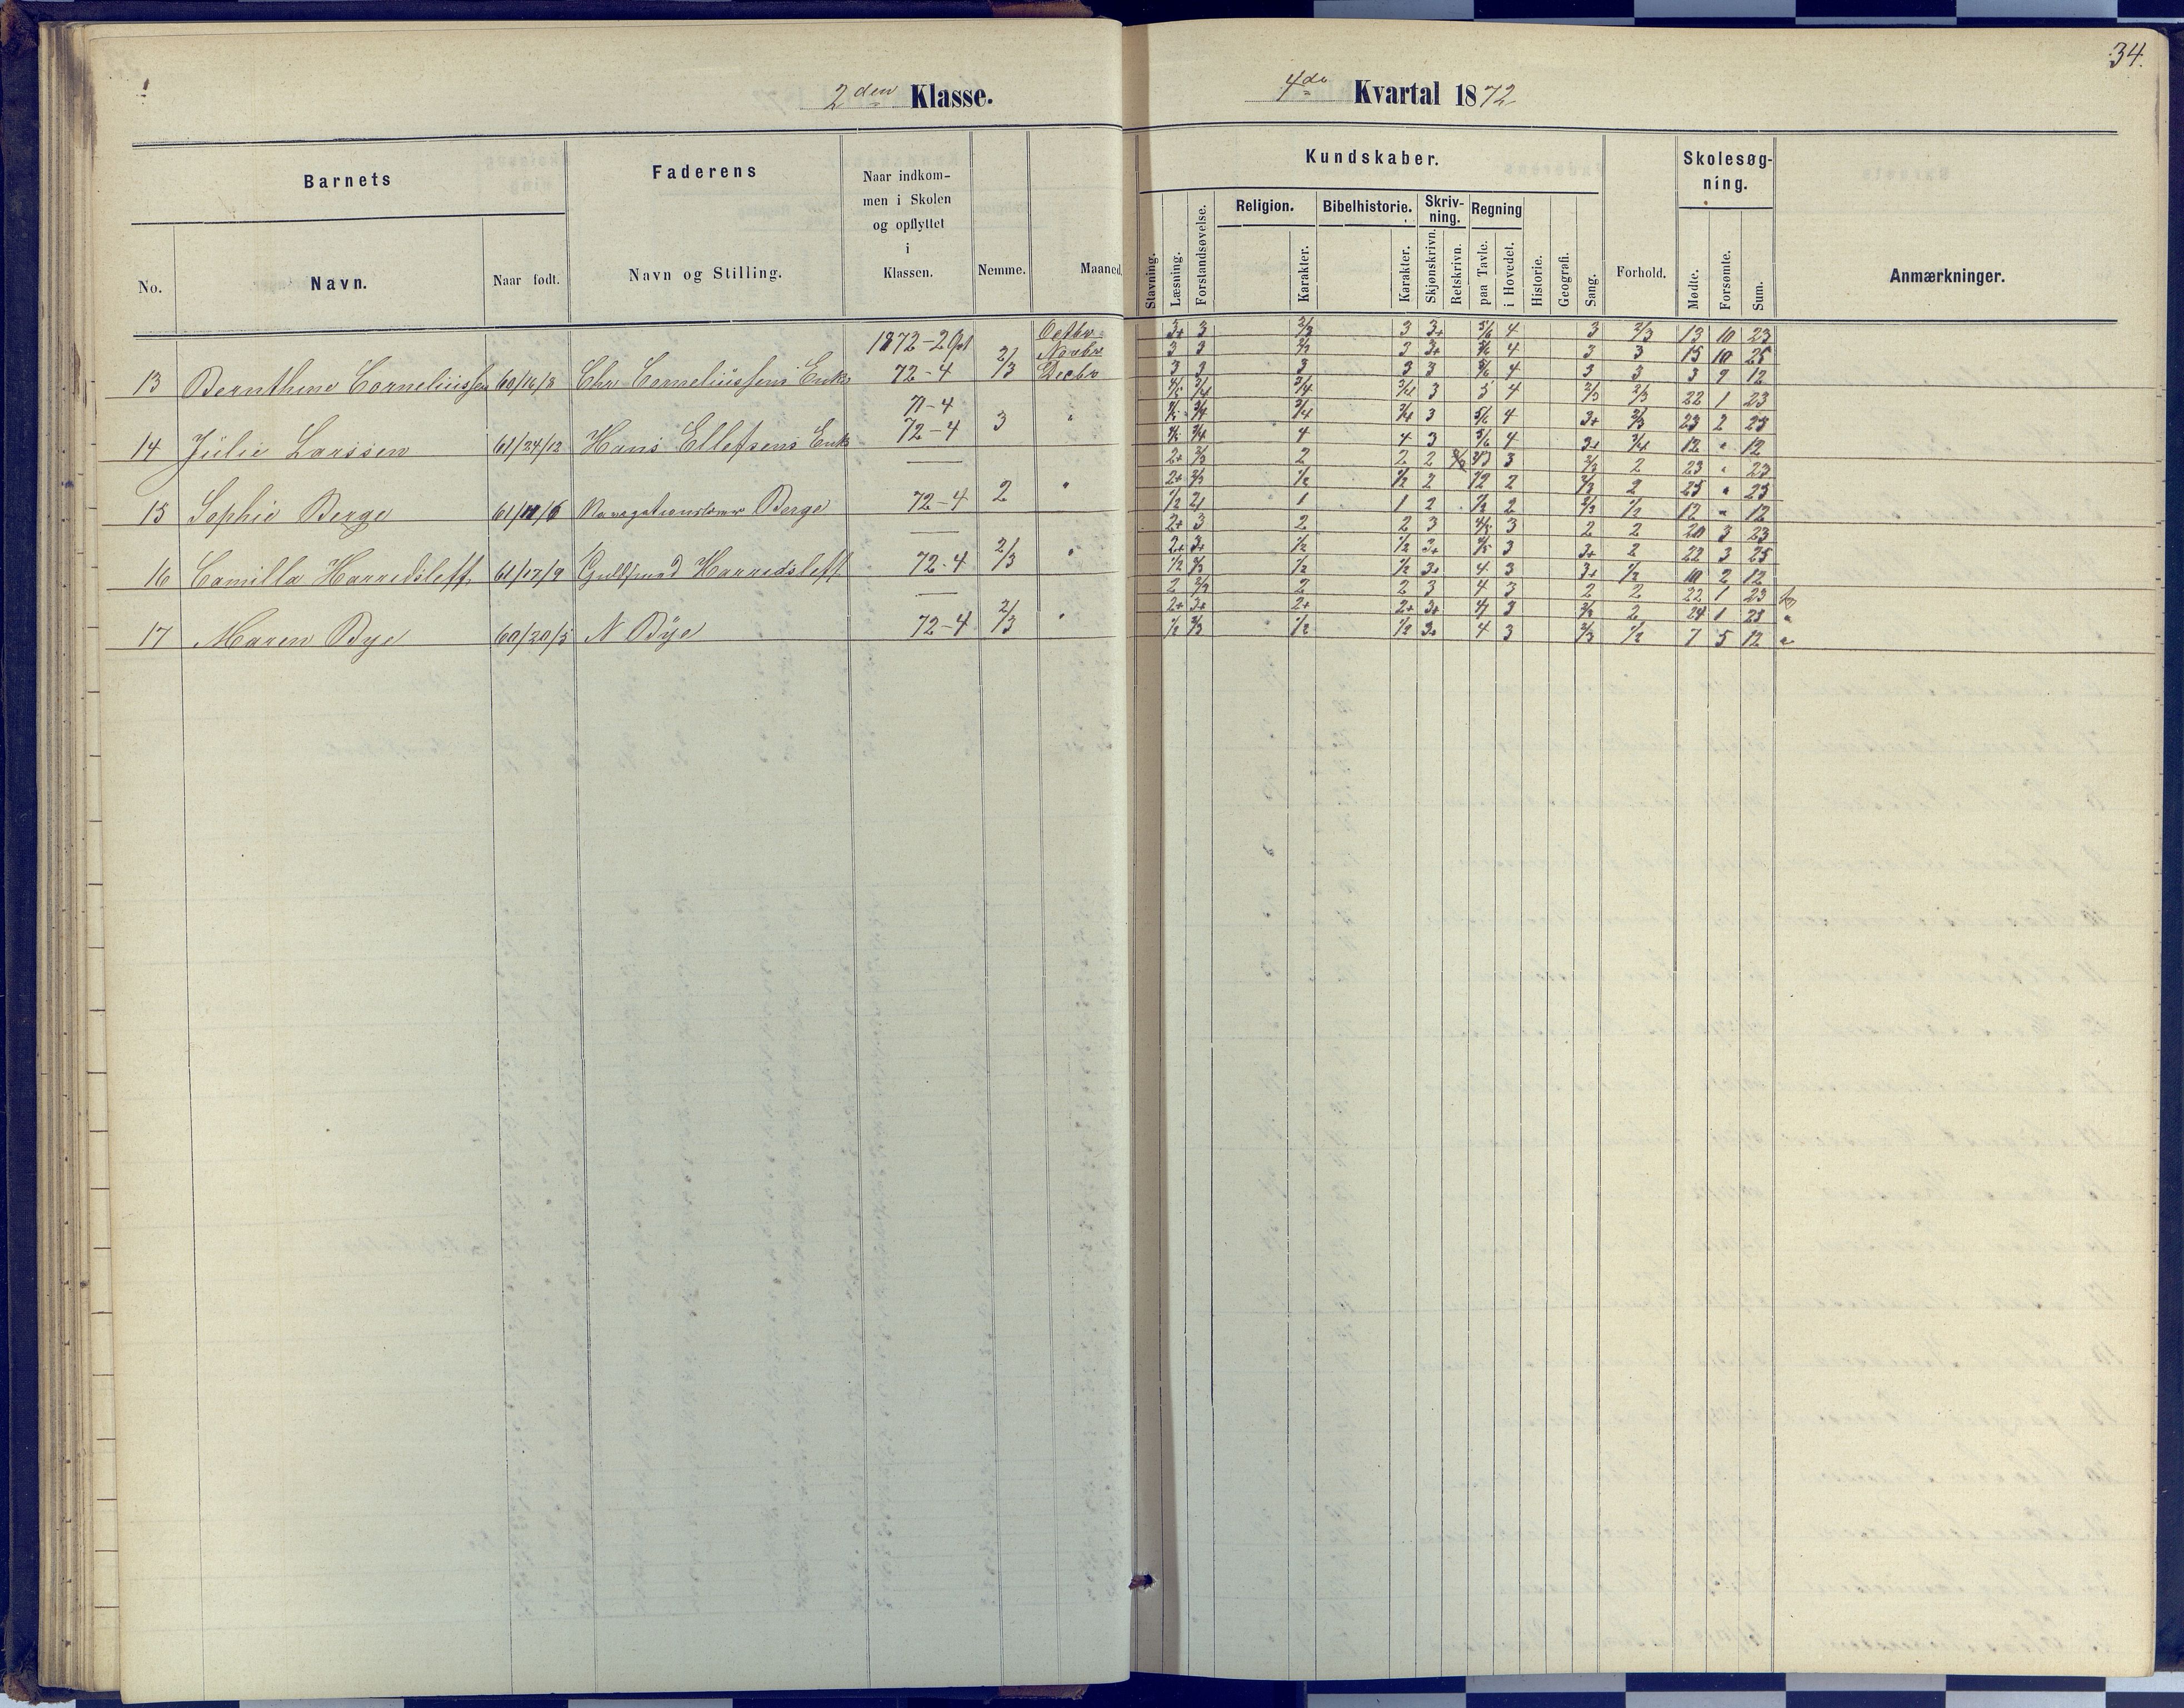 34.
2den Klasse.
4de Kvartal 1872
Barnets
Faderens
Naar indkom-
men i Skolen
og opflyttet
i
Klassen.
Nemme.
Maaned.
No.
Navn.
Naar født.
Navn og Stilling.
Kundskaber.
Skolesøg-
ning.
Religion.
Bibelhistorie.
Skriv-
ning.
Regning
Stavning.
Læsning.
Forstandsøvelse.
Karakter.
Karakter.
Skjønskrivn.
Retskrivn.
paa Tavle.
i Hovedet.
Historie.
Geografi.
Sang.
Forhold.
Mødte.
Forsømte.
Sum.
Anmærkninger.
1872-2 Octbr 3+ 3 2/3 3 3+ 5/6 4 3 2/3 13 10 23
Novbr 3 3 3 3+ 5/6 4 3 3 15 10 25
13 Bernthine Corneliussen 60/16/3 Chr Corneliussens Enke 72-4 2/3 Decbr 3 3 3 3 3 5/6 4 3 3 3 9 12
71-4 4/5 3/4 3/4 3/4 3 5 4 2/3 2/3 22 1 23
4/5 3/4 3/4 3/4 3 5/6 4 3+ 2/3 23 2 25
14 Julie Larssen 61/24/12 Hans Ellefsens Enke 72-4 3 " 4/5 3/4 4 4 3 5/6 4 3+ 3/4 12 " 12
2+ 2/3 2 2 2 3 2/3 2 23 " 23
2+ 2/3 1/2 1/2 2 1/2 2 2/3 2 25 " 25
15 Sophie Berge 61/11/6 Berge 72-4 2 " 1/2 2 1 1 2 1/2 2 2/3 1/2 12 " 12
2+ 3 2 2 3 4/5 3 2 2 20 3 23
2+ 3+ 1/2 1/2 3+ 4/5 3 3+ 2 22 3 25
16 Camilla Harredsleff 61/17/9 Harredsleff 72-4 2/3 " 1/2 2/3 1/2 1/2 3+ 4 3 3+ 1/2 10 2 12
2 2/3 2 2 3 4 3 2 2 22 1 23
2+ 3+ 2+ 2+ 3+ 4 3 2/3 2 24 1 25 "
17 Maren Bye 60/30/5 N Bye 72-4 2/3 " 1/2 2/3 1/2 1/2 3+ 4 3 2/3 1/2 7 5 12 "